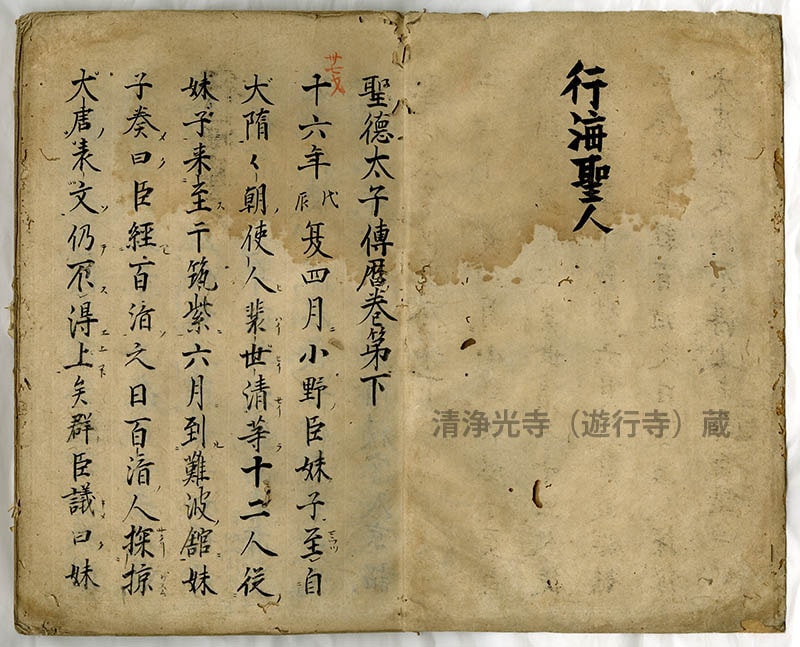 行海聖人
聖德太子傳曆卷第下
十六年戊辰夏四月小野臣妹子至自
大隋〻朝使人裴世清等十二人従
妹子来至于筑紫六月到難波舘妹
子奏曰臣經百済之日百済人探掠
大唐表文仍不得上矣群臣議曰妹
清浄光寺（遊行寺）蔵